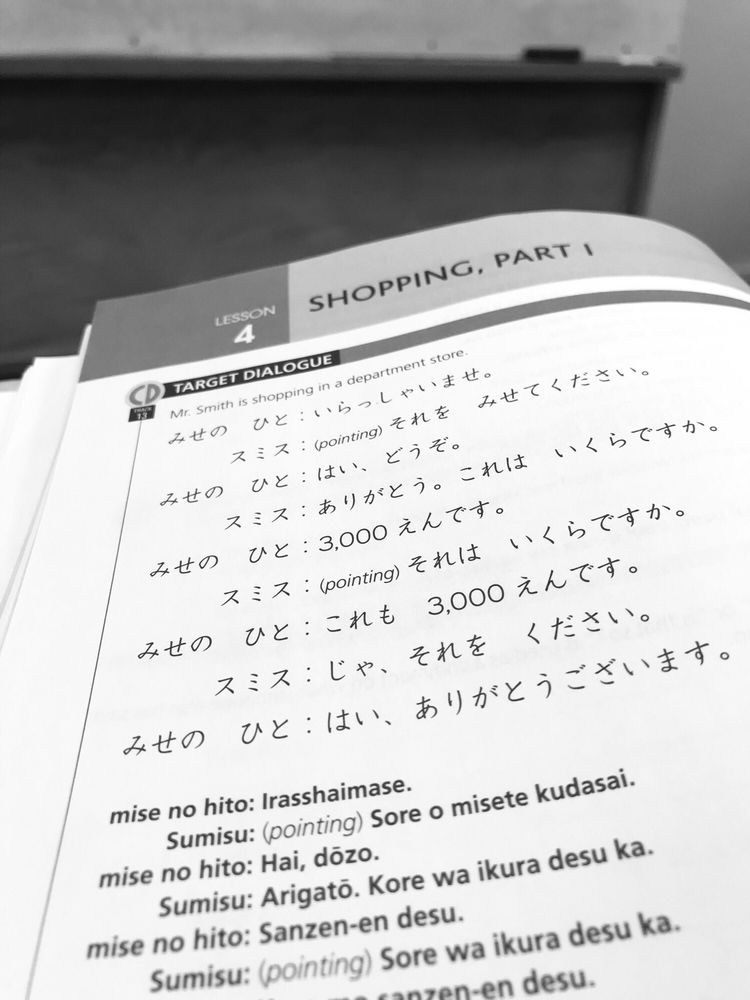 LESSON
4
SHOPPING, PART I
CD
TRACK
13
TARGET DIALOGUE
Mr. Smith is shopping in a department store.
みせの　ひと：いらっしゃいませ。
スミス：(pointing) それを　みせてください。
みせの　ひと：はい、どうぞ。
スミス：ありがとう。これは　いくらですか。
みせの　ひと：3,000 えんです。
スミス：(pointing) それは　いくらですか。
みせの　ひと：これも　3,000 えんです。
スミス：じゃ、それを　ください。
みせの　ひと：はい、ありがとうございます。
mise no hito: Irasshaimase.
Sumisu: (pointing) Sore o misete kudasai.
mise no hito: Hai, dōzo.
Sumisu: Arigatō. Kore wa ikura desu ka.
mise no hito: Sanzen-en desu.
Sumisu: (pointing) Sore wa ikura desu ka.
mo sanzen-en desu.